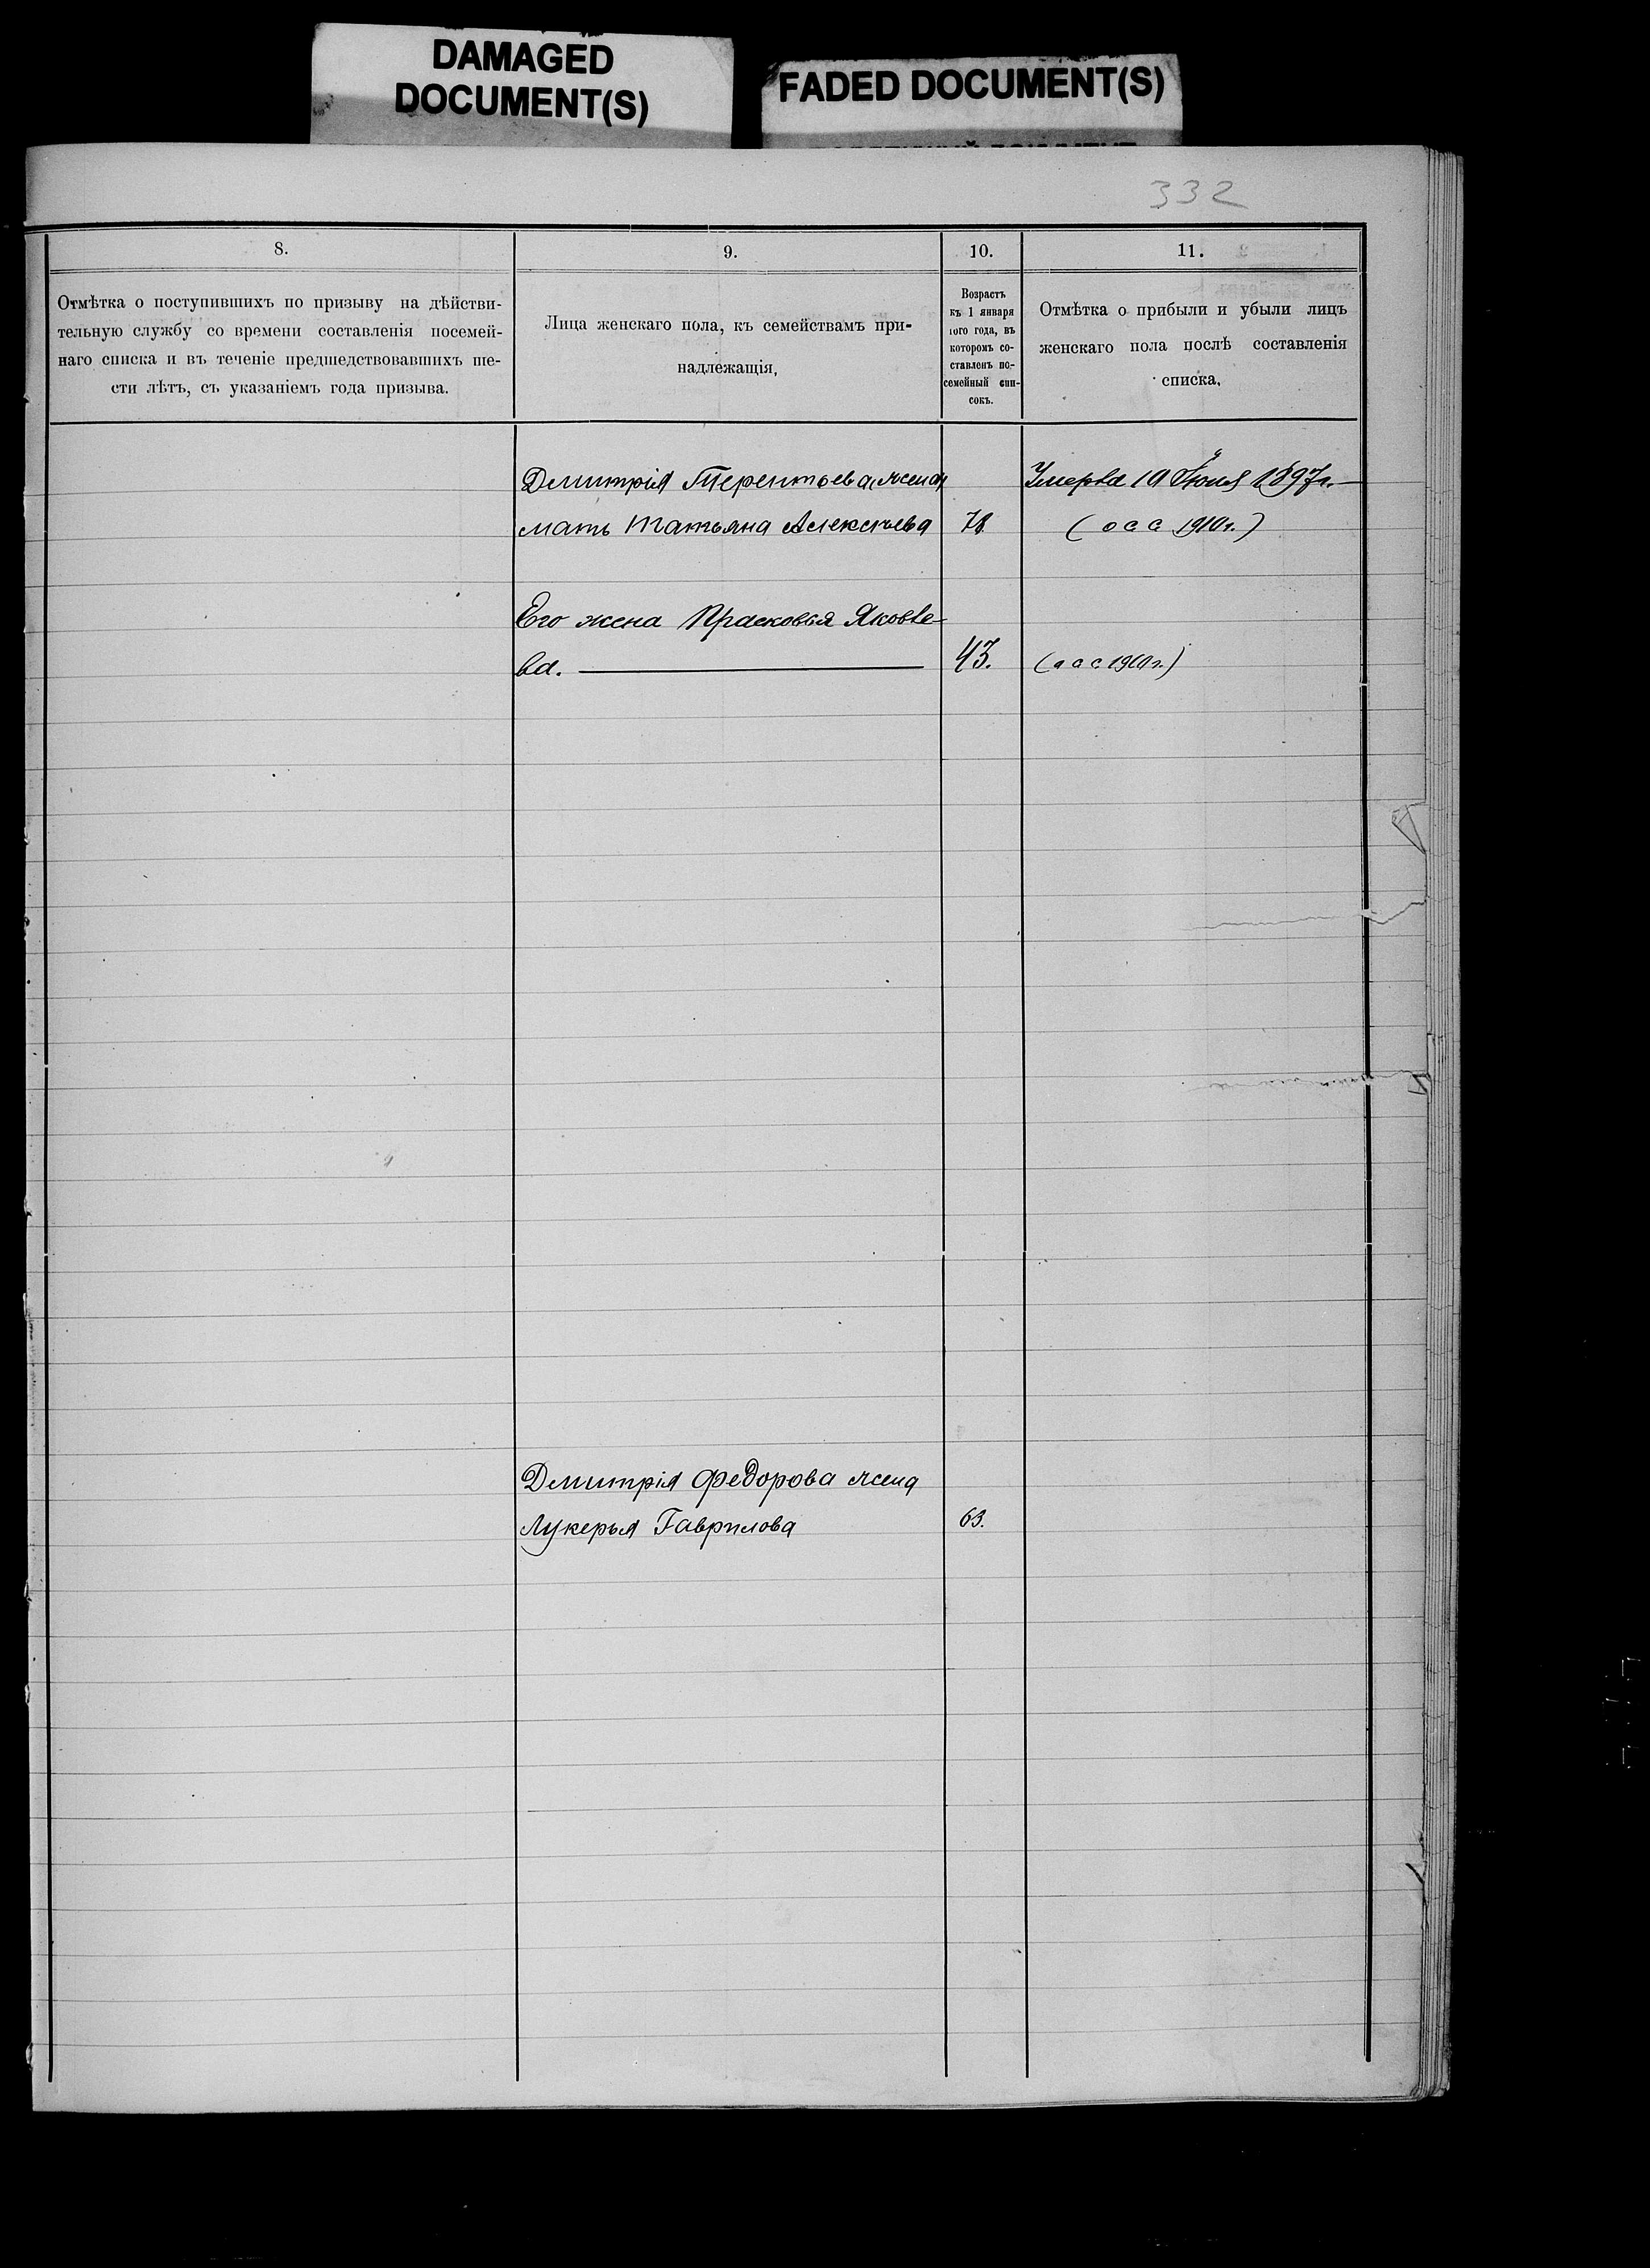 DAMAGED
DOCUMENT(S)
FADED DOCUMENT(S)
332
8.
9.
10.
11.
Отмѣтка о поступившихъ по призыву на дѣйстви-
тельную службу со времени составленія посемей-
наго списка и въ теченіе предшедствовавшихъ ше-
сти лѣтъ, съ указаніемъ года призыва.
Лица женскаго пола, къ семействамъ при-
надлежащія,
Возрастъ
къ 1 января
того года, въ
которомъ со-
ставленъ по-
семейный спи-
сокъ.
Отмѣтка о прибыли и убыли лицъ
женскаго пола послѣ составленія
списка.
Дмитрія Терентьева жена
Умерла 19 Іюня 1897 г.
мать Татьяна Алексѣева
78
1910 г.)
Его жена Прасковья Яковле-
ва.
43.
1910 г.)
Дмитрія Федорова жена
Лукерья Гаврилова
63.